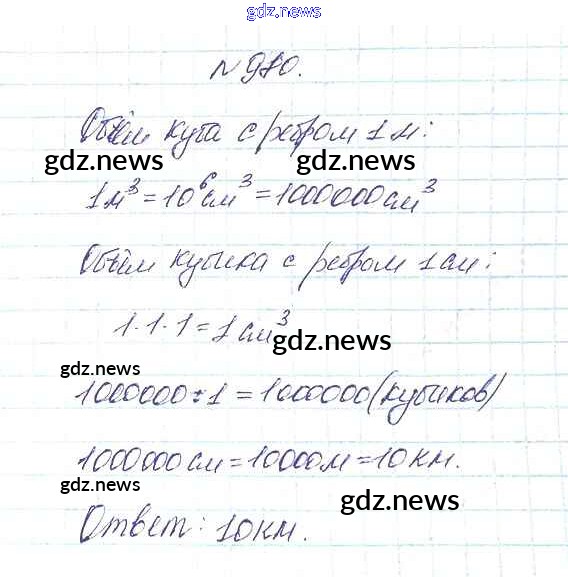 gdz.news
N980.
Объём куба с ребром 1 м:
gdz.news gdz.news
1м³ = 10⁶см³ = 1000000см³
Объём кубика с ребром 1см:
1·1·1 = 1см³
gdz.news
gdz.news
1000000 : 1 = 1000000 (кубиков)
1000000см = 10000м = 10км.
gdz.news
gdz.news
Ответ: 10км.